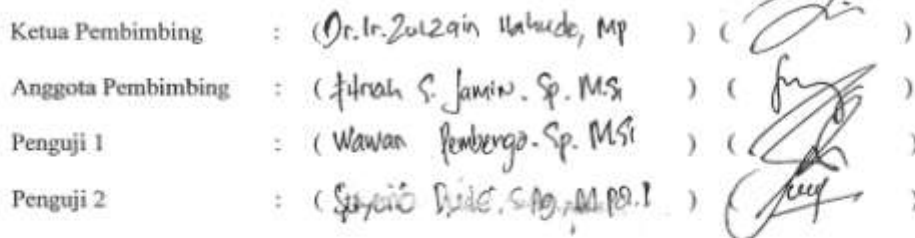 Ketua Pembimbing : (Dr. Ir. Zulzain Ilahude, MP ) ( )
Anggota Pembimbing : ( Fitriah S. Jamin. Sp. MSi ) ( )
Penguji 1 : ( Wawan Pembengo. Sp. MSi ) ( )
Penguji 2 : ( S.Ag, M.Pd.I ) ( )